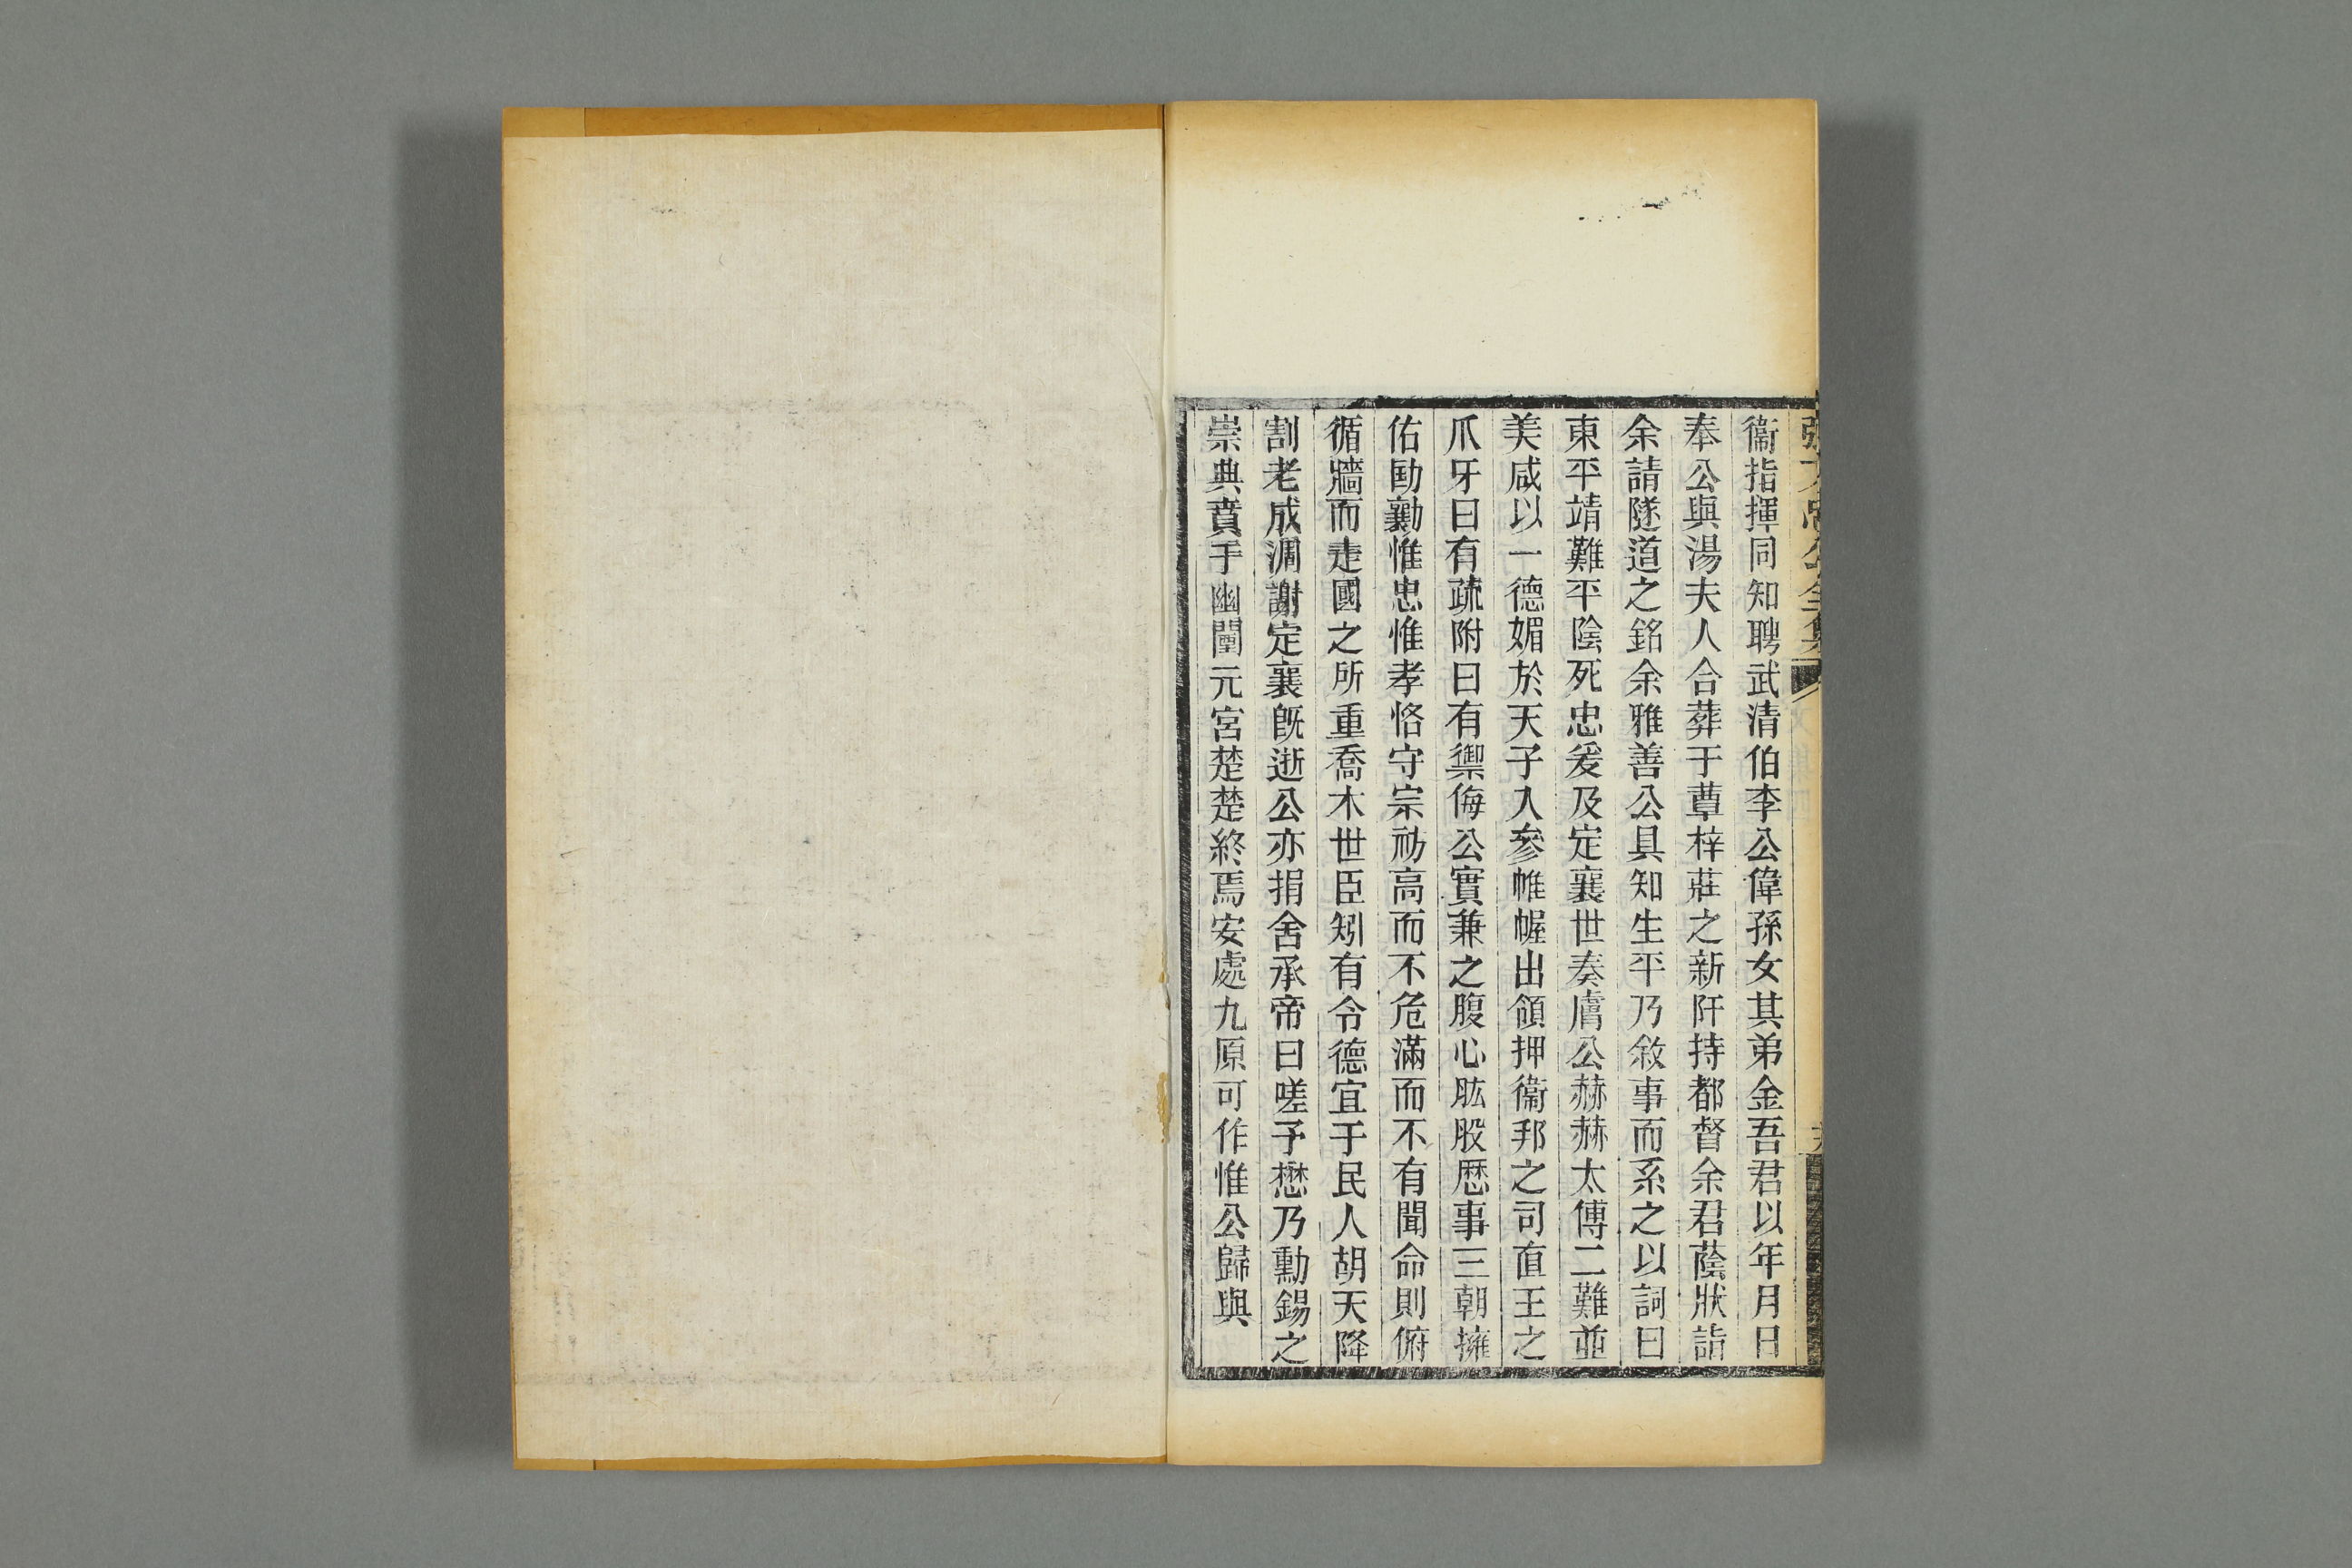 張文忠公全集
衞指揮同知聘武清伯李公偉孫女其弟金吾君以年月日
奉公與湯夫人合葬于蕈梓莊之新阡持都督余君蔭狀詣
余請隧道之銘余雅善公具知生平乃敘事而系之以詞曰
東平靖難平陰死忠爰及定襄世奏膚公赫赫太傅二難並
美咸以一德媚於天子入參帷幄出領押衞邦之司直王之
爪牙曰有疏附曰有禦侮公實兼之腹心肱股歷事三朝擁
佑劻勷惟忠惟孝恪守宗祊高而不危滿而不有聞命則俯
循牆而走國之所重喬木世臣矧有令德宜于民人胡天降
割老成凋謝定襄旣逝公亦捐舍承帝曰嗟予懋乃勳錫之
崇典賁于幽闉元宮楚楚終焉安處九原可作惟公歸與